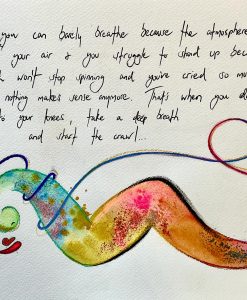 you can barely breathe because the atmosphere
your air & you struggle to stand up bec
won't stop spinning and you've cried so mu
nothing makes sense anymore. That's when you d
to your knees, take a deep breath
and start the crawl...